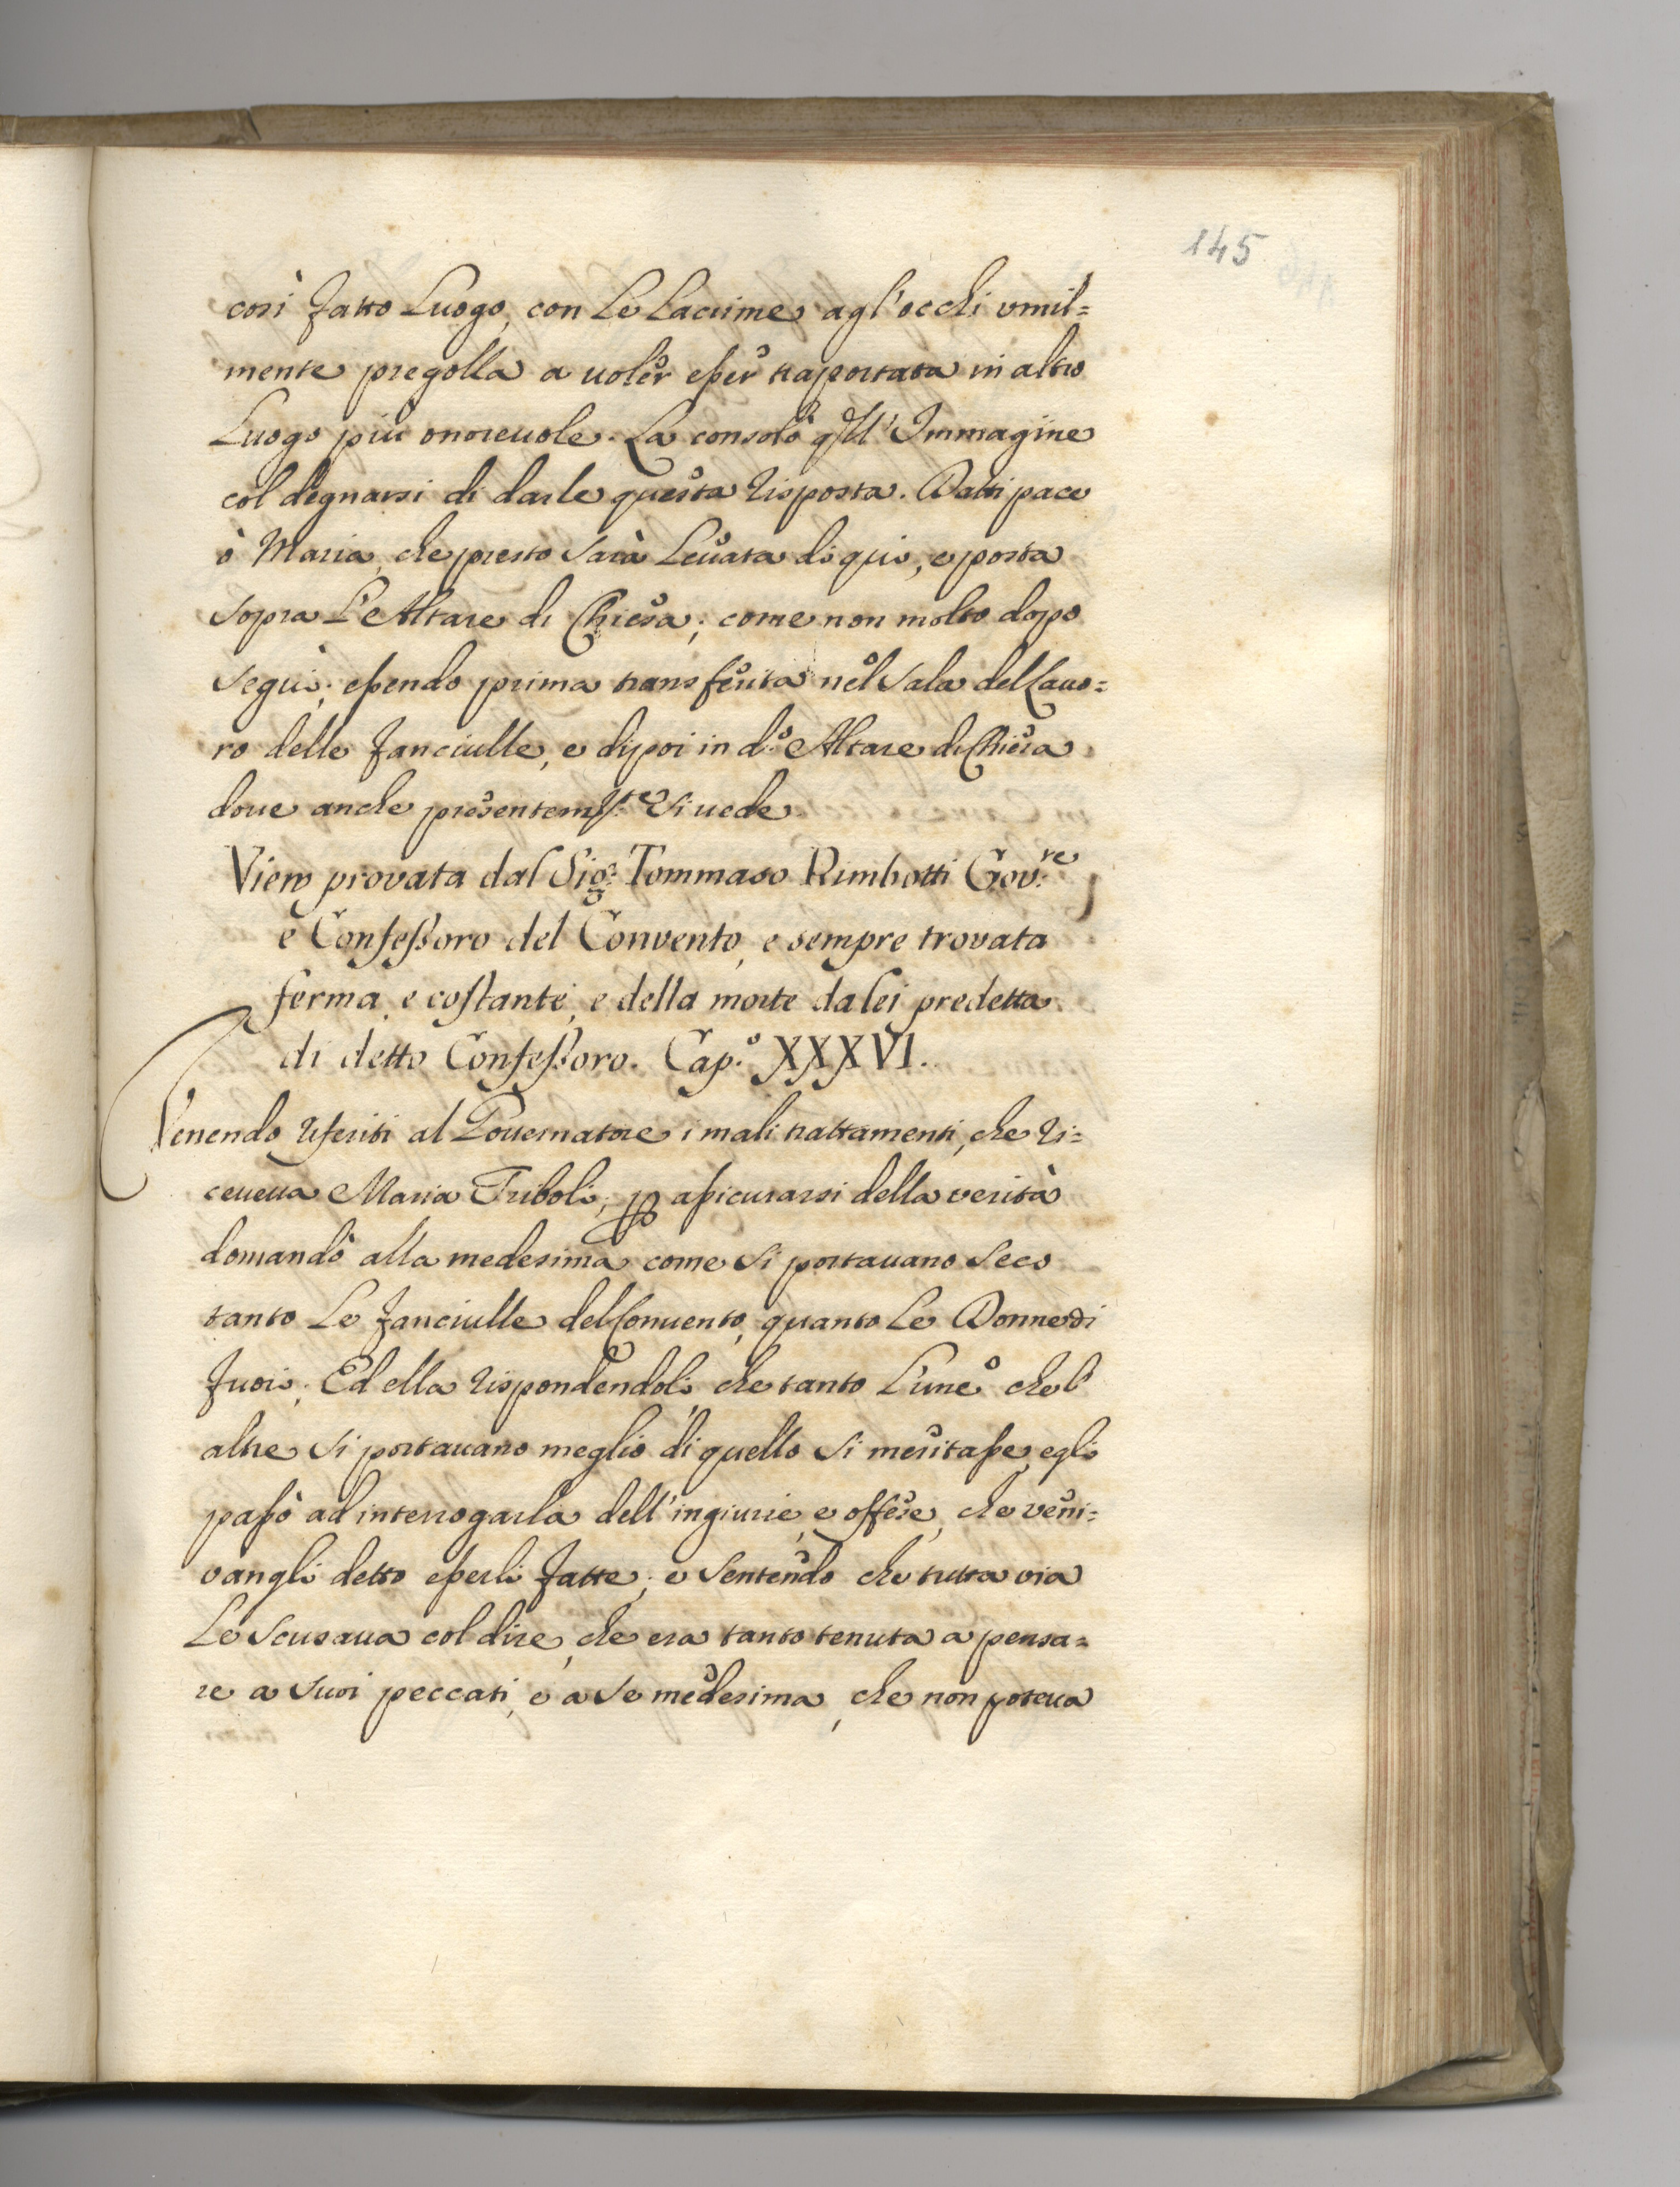 145
così fatto Luogo, con Le Lacrime agl'occhi vmil=
mente pregolla a uoler esser trasportata in altro
Luogo più onoreuole. La consolò qll' Immagine
col degnarsi di darle questa risposta. Datti pace
ò Maria, che presto sarà Leuata di qui, e posta
sopra L'Altare di Chiesa; come non molto dopo
seguì; essendo prima transferita nel Sala del Lauo=
ro delle fanciulle, e dipoi in d.º Altare di Chiesa
doue anche presentem.te si uede
Viene provata dal Sig.r Tommaso Rimbotti Gov.re
e Confessoro del Convento, e sempre trovata
ferma, e costante, e della morte da lei predetta
di detto Confessoro. Cap.º XXXVI.
Venendo riferiti al Gouernatore i mali trattamenti, che ri=
ceueua Maria Triboli; p assicurarsi della verità
domandò alla medesima come si portauano seco
tanto Le fanciulle del Conuento, quanto Le Donne di
fuori; Ed ella rispondendoli, che tanto L'une che l'
altre si portauano meglio di quello si meritasse, egli
passò ad interrogarla dell'ingiurie, e offese, che veni=
vangli detto esserli fatte; e sentendo che tutta via
Le scusaua col dire, che era tanto tenuta a pensa=
re a suoi peccati, e a se medesima, che non poteua